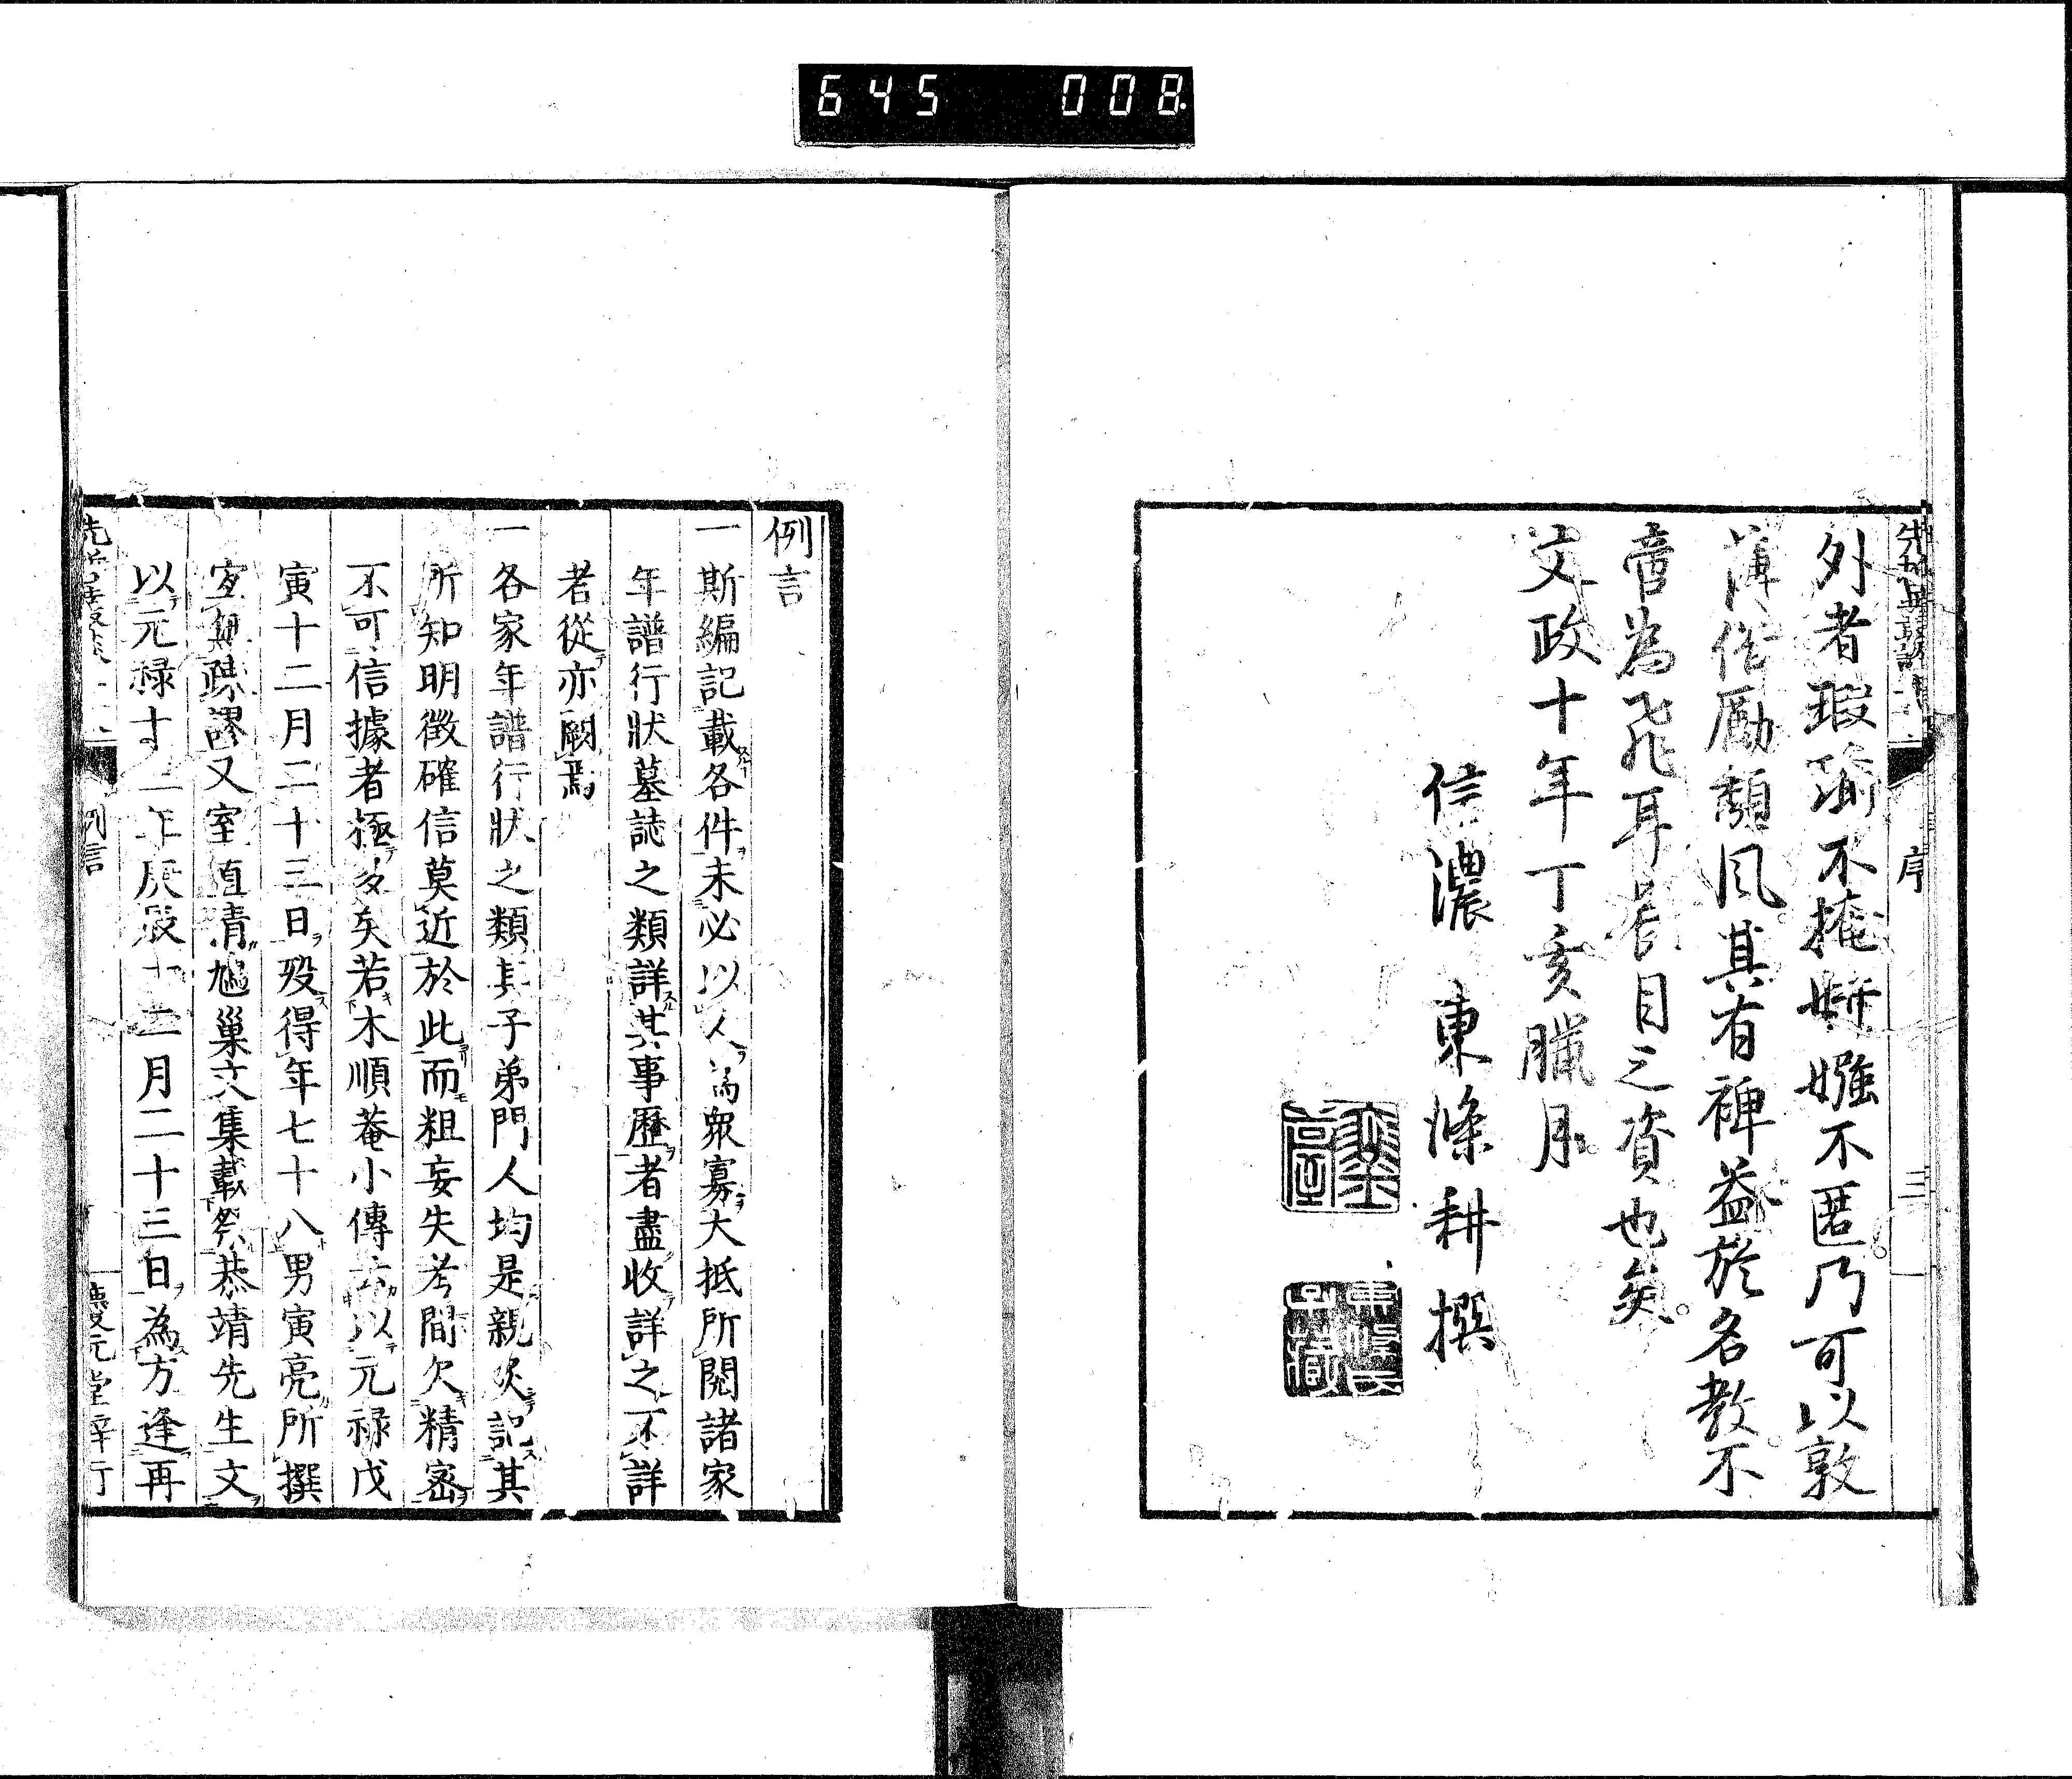 645 008
序
三
外者瑕瑜不掩妍媸不匿乃可以敦
薄俗勵頽風其有裨益於名教不
啻為飛耳長目之資也矣
文政十年丁亥臘月
信濃 東條耕撰
例言
一斯編記載各件未必以人為衆寡大抵所閲諸家
年譜行狀墓誌之類詳其事歷者盡收詳之不詳
者從亦闕焉
一各家年譜行狀之類其子弟門人均是親炙記其
所知明徵確信莫近於此而粗妄失考間欠精密
不可信據者極多矣若木順菴小傳云以元祿戊
寅十二月二十三日歿得年七十八男寅亮所撰
寔無疎謬又室直清鳩巢文集載祭恭靖先生文
以元祿十二年庚辰十二月二十三日為方逢再
例言
慶元堂梓行